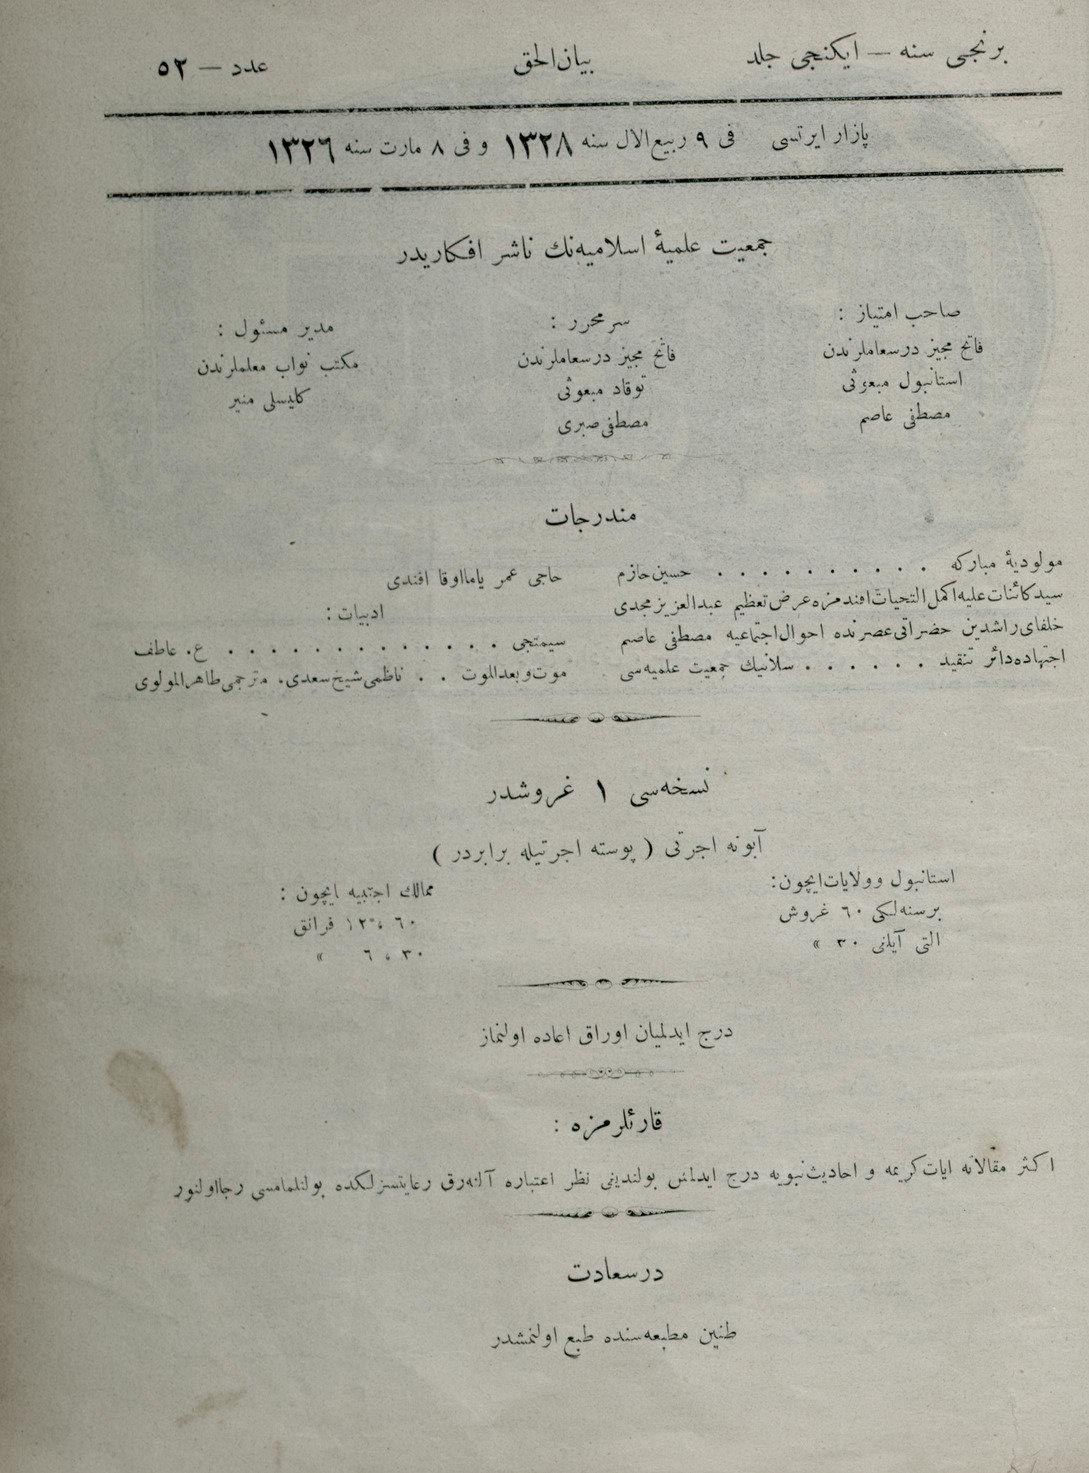 برنجی سنه — ایکنجی جلد
بیان الحق
عدد — ٥٢
پازار ایرتسی فی ٩ ربیع الاول سنه ١٣٢٨ و فی ٨ مارت سنه ١٣٢٦
جمعیت علمیهٔ اسلامیه‌نك ناشر افکاریدر
صاحب امتیاز :
فاتح مجیز درسعاملرندن
استانبول مبعوثی
مصطفی عاصم
سرمحرر :
فاتح مجیز درسعاملرندن
توقاد مبعوثی
مصطفی صبری
مدیر مسئول :
مکتب نواب معلملرندن
کلیسلی منیر
مندرجات
مولودیهٔ مبارکه . . . . . . . . . . حسین حازم
سید کائنات علیه اکمل التحیات افندمزه عرض تعظیم عبدالعزیز مجدی
خلفای راشدین حضراتی عصرنده احوال اجتماعیه مصطفی عاصم
اجتهاده دائر تنقید . . . . . . سلانیك جمعیت علمیه‌سی
حاجی عمر یاماااوقا افندی
ادبیات :
سیمتجی . . . . . . . . . . . . . ع. عاطف
موت و بعد الموت . . ناظمی شیخ سعدی، مترجمی طاهر المولوی
نسخه‌سی ١ غروشدر
آبونه اجرتی ( پوسته اجرتیله برابردر )
استانبول وولایات ایچون :
برسنه‌لکی ٦٠ غروش
التی آیلنی ٣٠ »
ممالك اجنبیه ایچون :
٦٠ ، ١٢ فرانق
٣٠ ، ٦ »
درج ایدلمیان اوراق اعاده اولنماز
قارئلرمزه :
اکثر مقالاته ایات کریمه و احادیث نبویه درج ایدلمش بولندیغی نظر اعتباره آلنه‌رق رعایتسزلکده بولنلمامسی رجا اولنور
درسعادت
طنین مطبعه‌سنده طبع اولنمشدر